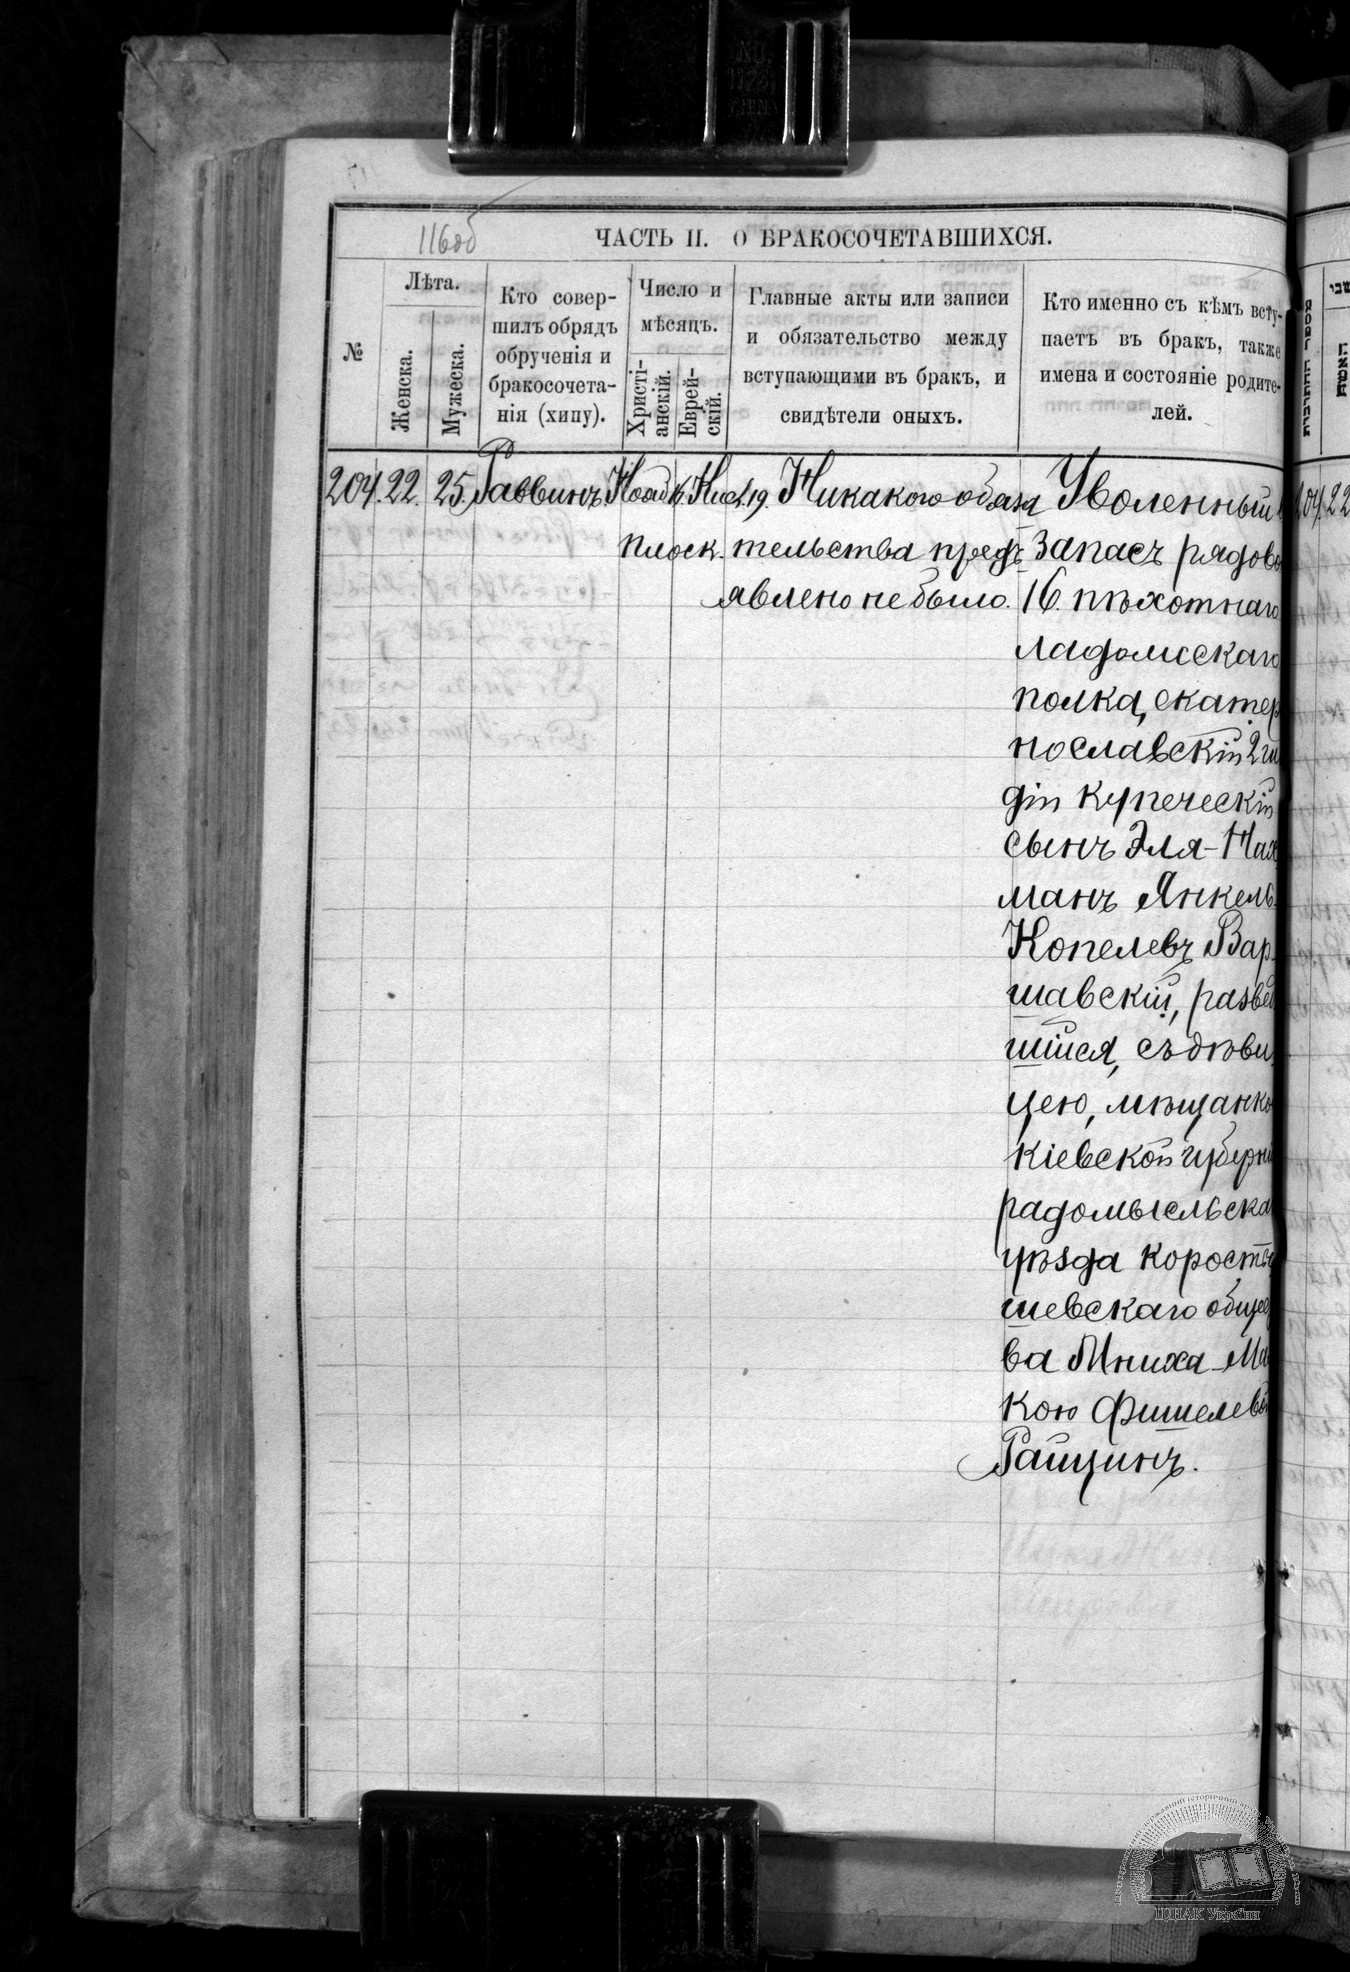 116об
ЧАСТЬ II. О БРАКОСОЧЕТАВШИХСЯ.
№
Лѣта.
Женска.
Мужеска.
Кто совер-
шилъ обрядъ
обрученія и
бракосочета-
нія (хипу).
Число и
мѣсяцъ.
Христі-
анскій.
Еврей-
скій.
Главные акты или записи
и обязательство между
вступающими въ бракъ, и
свидѣтели оныхъ.
Кто именно съ кѣмъ всту-
паетъ въ бракъ, также
имена и состояніе родите-
лей.
204. 22. 25. Раввинъ. Нояб 16. Кис. 19. Никакого обяза Уволенный
плоск. тельства предъ запасъ рядово
явлено не было. 16 пѣхотнаго
ладожскаго
полка, екатер
нославскій 2 ги
діи купеческій
сынъ Эля-Нах
манъ Янкель
Копелевъ Вар-
шавскій, развед
шійся, съ дѣви
цею, мѣщанко
кіевской губерні
радомысльска
уѣзда корость
шевскаго общес
ва Мниха-Ма
кою Фишелево
Райцинъ.
204. 22
ЦДІАК України